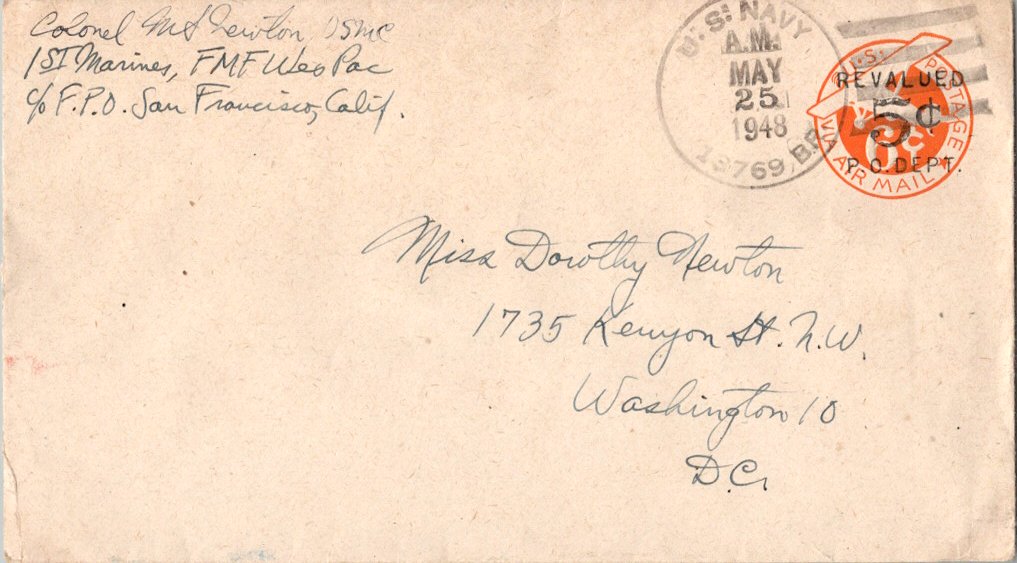 Colonel M S Newton, USMC
1ST Marines, FMF Wes Pac
c/o F.P.O. San Francisco, Calif.
U.S. NAVY
A.M.
MAY
25
1948
13769, BR.
U.S. POSTAGE
REVALUED
5¢
6¢
P.O. DEPT.
VIA AIR MAIL
Miss Dorothy Newton
1735 Kenyon St. N.W.
Washington 10
D.C.